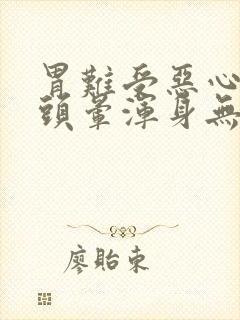 胃難受惡心
頭暈渾身無
廖貽東